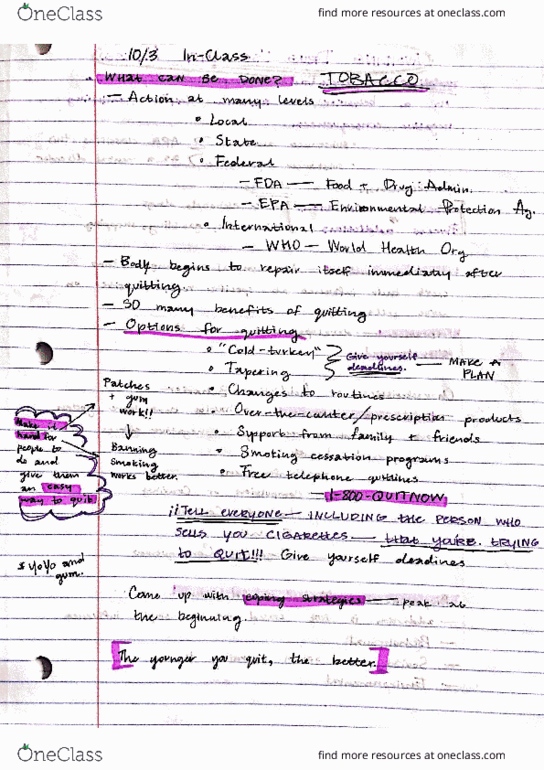 OneClass
find more resources at oneclass.com
10/3 In-Class
WHAT CAN BE DONE? TOBACCO
— Action at many levels
• Local
• State
• Federal
— FDA — Food + Drug Admin.
— EPA — Environmental Protection Ag.
• International
— WHO — World Health Org
— Body begins to repair itself immediatly after
quitting
— SO many benefits of quitting
— Options for quitting
• "Cold-turkey"
• Tapering
Give yourself
deadlines.
— MAKE A
PLAN
Patches
+ gum
work!!
↓
Banning
smoking
works better.
Make it
hard for
people to
do and
give them
an easy
way to quit
• Changes to routines
• Over-the-counter/prescription products
• Support from family + friends
• Smoking cessation programs
• Free telephone quitlines
— 1-800-QUITNOW
¡¡TELL EVERYONE — INCLUDING THE PERSON WHO
SELLS YOU CIGARETTES — THAT YOU'RE TRYING
TO QUIT!!! Give yourself deadlines
* YOYO and
gum.
Come up with coping strategies — peak at
the beginning.
[The younger you quit, the better.]
OneClass
find more resources at oneclass.com